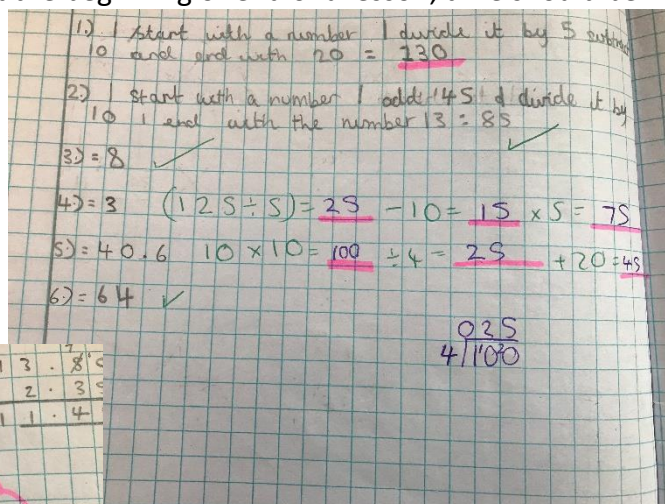 1.) I start with a number I divide it by 5 subtract
10 and end with 20 = 130
2.) I start with a number I add 145 + divide it by
10 I end with the number 13 = 85
3.) = 8
4.) = 3 (125 ÷ 5) = 25 - 10 = 15 × 5 = 75
5.) = 40.6 10 × 10 = 100 ÷ 4 = 25 + 20 = 45
6.) = 64
025
4 100
3 . 8
2 . 3
1 1 . 4